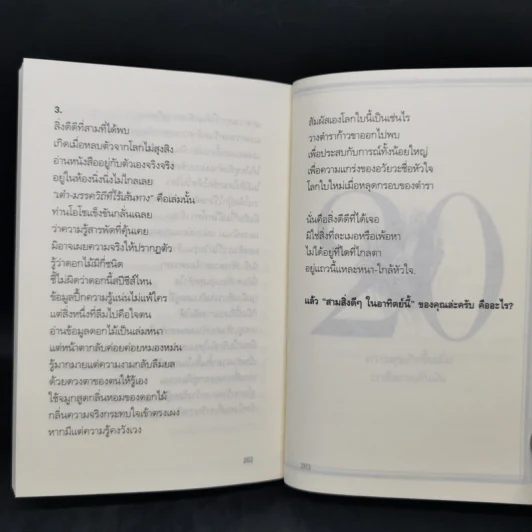 3.
สิ่งดีดีที่สามที่ได้พบ
เกิดเมื่อหลบตัวจากโลกไม่สูงสิง
อ่านหนังสืออยู่กับตัวเองจริงจริง
อยู่ในห้องนิ่งนิ่งไม่ไกลเลย
"เต๋า-มรรควิถีที่ไร้เส้นทาง" คือเล่มนั้น
ท่านโอโชแข็งขันกลั่นเฉลย
ว่าความรู้สารพัดที่คุ้นเคย
มิอาจเผยความจริงให้ปรากฏตัว
รู้ว่าดอกไม้มีกี่ชนิด
ชี้ไม่ผิดว่าดอกนี้สปีชีส์ไหน
ข้อมูลปึ้กความรู้แน่นไม่แพ้ใคร
แต่สิ่งหนึ่งที่ลืมไปคือใจตน
อ่านข้อมูลดอกไม้เป็นเล่มหนา
แต่หน้าตากลับค่อยค่อยหมองหม่น
รู้มากมายแต่ความงามกลับลืมยล
ด้วยดวงตาของตนให้รู้เอง
ใช้จมูกสูดกลิ่นหอมของดอกไม้
กลิ่นความจริงกระทบใจเข้าตรงเผง
หากมีแต่ความรู้คงวังเวง
202
สัมผัสเองโลกใบนี้เป็นเช่นไร
วางตำราก้าวขาออกไปพบ
เพื่อประสบกับการณ์ทั้งน้อยใหญ่
เพื่อความแกร่งของอวัยวะชื่อหัวใจ
โลกใบใหม่เมื่อหลุดกรอบของตำรา
นั่นคือสิ่งดีดีที่ได้เจอ
มิใช่สิ่งที่ละเมอหรือเพ้อหา
ไม่ได้อยู่ที่ใดที่ไกลตา
อยู่แถวนี้แหละหนา-ใกล้หัวใจ.
แล้ว "สามสิ่งดีๆ ในอาทิตย์นี้" ของคุณล่ะครับ คืออะไร?
203